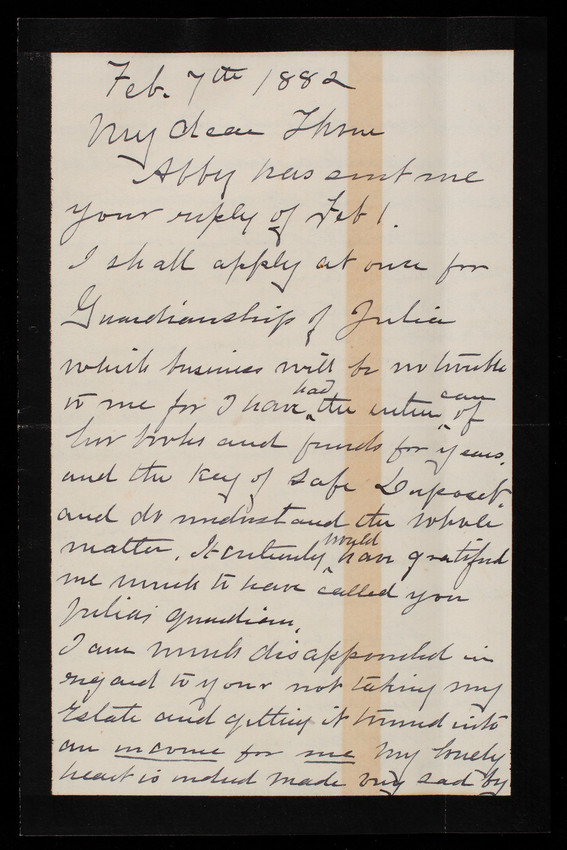 Feb. 7th 1882
My dear Thom
Abby has sent me
your reply of Feb 1.
I shall apply at once for
Guardianship of Julia
which business will be no trouble
to me for I have had the entire care of
her books and funds for years.
and the key of Safe Deposet.
and do understand the whole
matter. It certainly would have gratified
me much to have called you
Julias guardian.
I am much disappointed in
regard to your not taking my
Estate and getting it turned into
an income for me My lonely
heart is indeed made very sad by